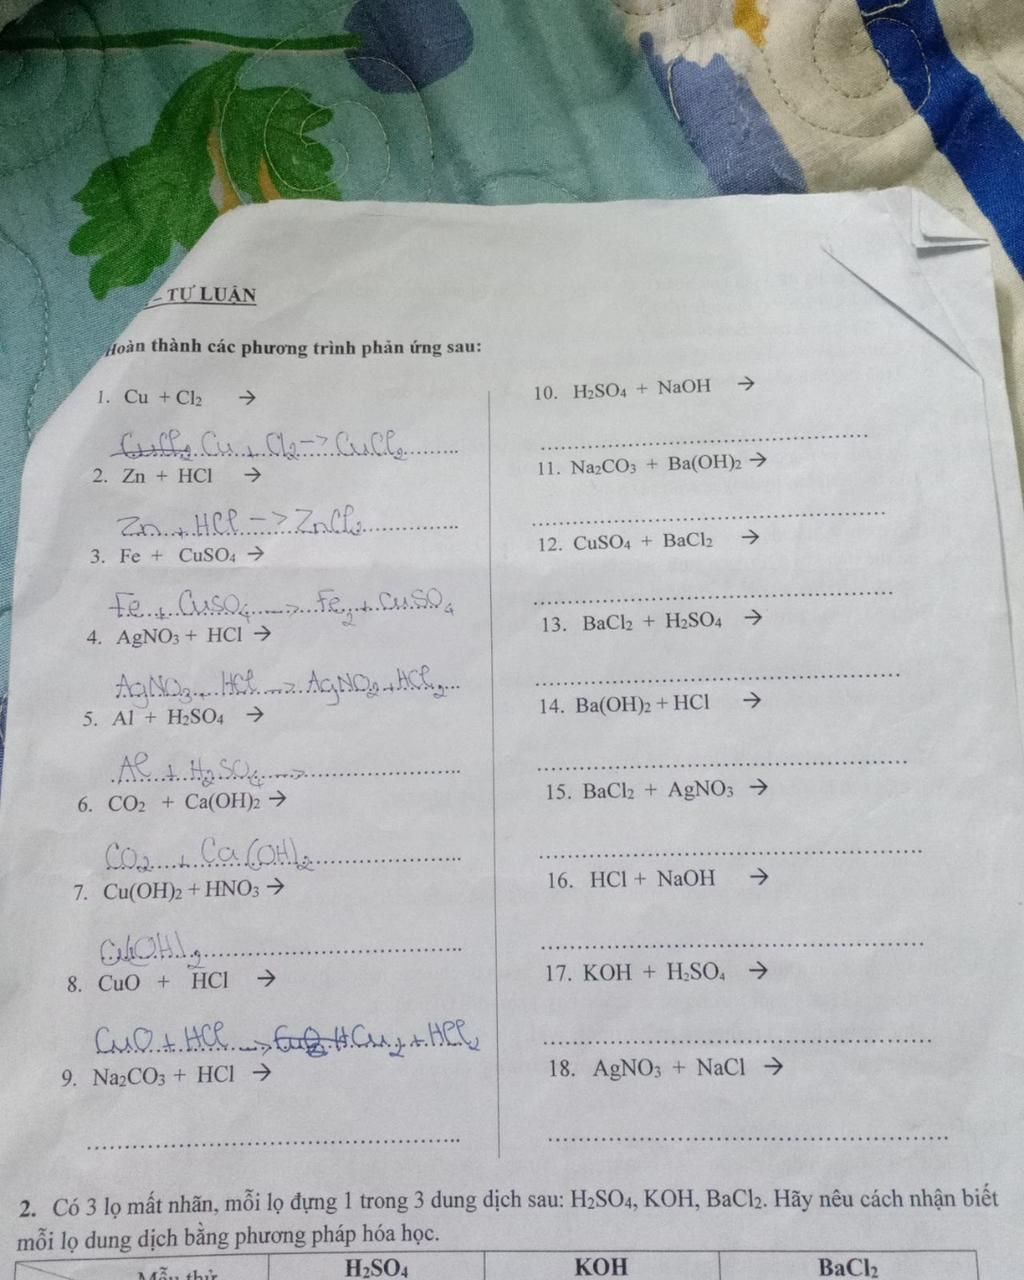 – TỰ LUẬN
Hoàn thành các phương trình phản ứng sau:
1. Cu + Cl₂ →
Cu + Cl₂ -> CuCl₂
2. Zn + HCl →
Zn + HCl -> ZnCl₂
3. Fe + CuSO₄ →
Fe + CuSO₄ -> Fe₂ + CuSO₄
4. AgNO₃ + HCl →
AgNO₃ + HCl -> AgNO₂ + HCl₂
5. Al + H₂SO₄ →
Al + H₂SO₄ ->
6. CO₂ + Ca(OH)₂ →
CO₂ + Ca(OH)₂
7. Cu(OH)₂ + HNO₃ →
Cu(OH)₂
8. CuO + HCl →
CuO + HCl -> HCu₂ + HCl₂
9. Na₂CO₃ + HCl →
10. H₂SO₄ + NaOH →
11. Na₂CO₃ + Ba(OH)₂ →
12. CuSO₄ + BaCl₂ →
13. BaCl₂ + H₂SO₄ →
14. Ba(OH)₂ + HCl →
15. BaCl₂ + AgNO₃ →
16. HCl + NaOH →
17. KOH + H₂SO₄ →
18. AgNO₃ + NaCl →
2. Có 3 lọ mất nhãn, mỗi lọ đựng 1 trong 3 dung dịch sau: H₂SO₄, KOH, BaCl₂. Hãy nêu cách nhận biết
mỗi lọ dung dịch bằng phương pháp hóa học.
Mẫu thử H₂SO₄ KOH BaCl₂